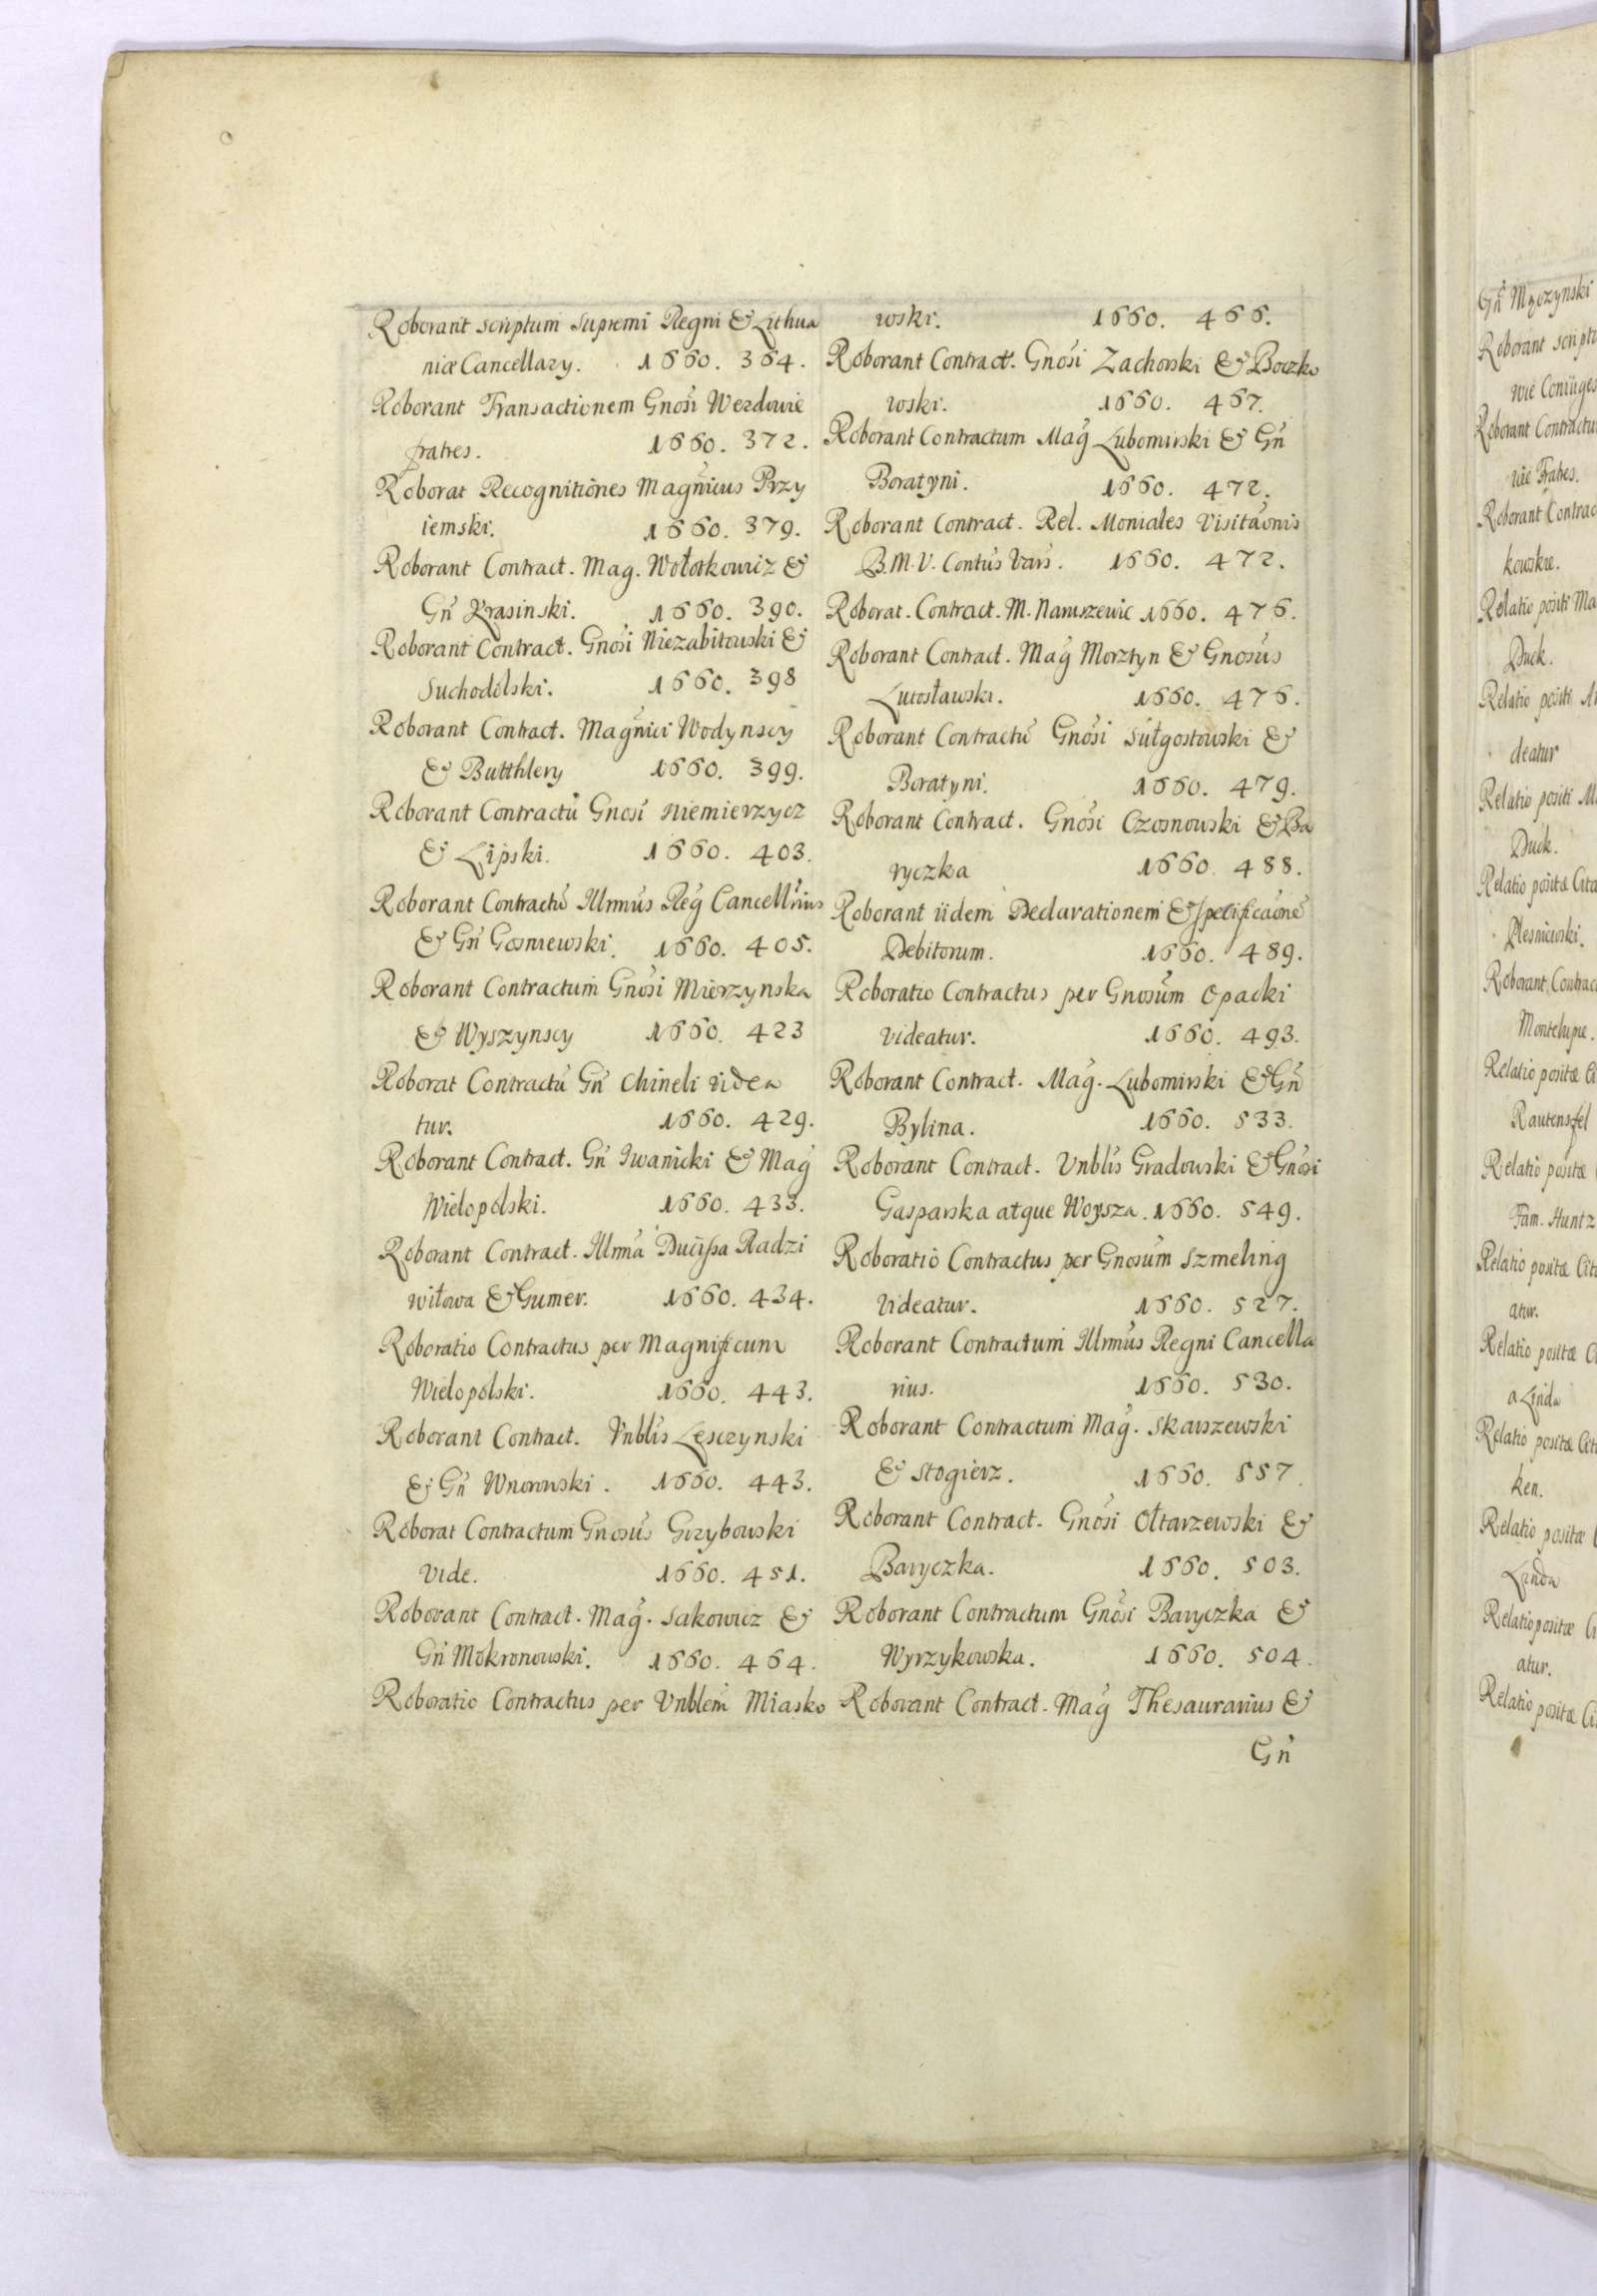 Roborant scriptum Supremi Regni & Lithua
niæ Cancellary. 1660. 364.
Roborant Transactionem Gnosi Wezdowie
fratres. 1660. 372.
Roborat Recognitiones Magnicus Przy
iemski. 1660. 379.
Roborant Contract. Mag. Wołotkowicz &
Gn Krasinski. 1660. 390.
Roborant Contract. Gnosi Niezabitowski &
Suchodolski. 1660. 398
Roborant Contract. Magnici Wodynscy
& Butthlery 1660. 399.
Roborant Contractu Gnosi Niemierzycz
& Lipski. 1660. 403.
Roborant Contractu Illmus Reg Cancellrius
& Gn Gosniewski. 1660. 405.
Roborant Contractum Gnosi Mierzynska
& Wyszynscy 1660. 423
Roborat Contractu Gn Chineli videa
tur. 1660. 429.
Roborant Contract. Gn Iwanicki & Mag
Wielopolski. 1660. 433.
Roborant Contract. Illma Ducissa Radzi
wiłowa & Gumer. 1660. 434.
Roboratio Contractus per Magnificum
Wielopolski. 1660. 443.
Roborant Contract. Vnblis Lesczynski
& Gn Wnorowski. 1660. 443.
Roborat Contractum Gnosus Grzybowski
Vide. 1660. 451.
Roborant Contract. Mag. Sakowicz &
Gn Mokronowski. 1660. 464.
Roboratio Contractus per Vnblem Miasko
wski. 1660. 466.
Roborant Contract. Gnosi Zachorski & Boczko
wski. 1660. 467.
Roborant Contractum Mag Lubomirski & Gn
Boratyni. 1660. 472.
Roborant Contract. Rel. Moniales Visitaonis
B.M.V. Contus Vars. 1660. 472.
Roborat. Contract. M. Naruszewic 1660. 476.
Roborant Contract. Mag Morztyn & Gnosus
Lutosławski. 1660. 476.
Roborant Contractu Gnosi Sułgostowski &
Boratyni. 1660. 479.
Roborant Contract. Gnosi Czosnowski & Ba
ryczka 1660. 488.
Roborant iidem Declarationem & specificaone
Debitorum. 1660. 489.
Roboratio Contractus per Gnosum Opacki
videatur. 1660. 493.
Roborant Contract. Mag. Lubomirski & Gn
Bylina. 1660. 533.
Roborant Contract. Vnblis Gradowski & Gnosi
Gasparska atque Woysza. 1660. 549.
Roboratio Contractus per Gnosum Szmeling
Videatur. 1660. 527.
Roborant Contractum Illmus Regni Cancella
rius. 1660. 530.
Roborant Contractum Mag. Skarszewski
& Stogierz. 1660. 557.
Roborant Contract. Gnosi Ołtarzewski &
Baryczka. 1660. 503.
Roborant Contractum Gnosi Baryczka &
Wyrzykowska. 1660. 504.
Roborant Contract. Mag Thesaurarius &
Gn
Gn Mączynski
Roborant scriptu
Roborant Contractu
Fratres.
Roborant Contrac
Relatio positi Ma
Duck.
Relatio positi
deatur
Relatio positi
Duck.
Relatio positæ Cita
Plesniewski.
Roborant Contrac
Montelupie.
Relatio positæ
Rautensfel
Relatio positæ
Fam. Huntz
Relatio positæ Cit
atur.
Relatio positæ
a Linda
Relatio positæ Cit
ken.
Relatio positæ
Linda
Relatio positæ
atur.
Relatio positæ